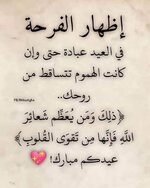 إظهار الفرحة
في العيد عبادة حتى وإن
كانت الهموم تتساقط من
روحك..
﴿ذلِكَ وَمَن يُعَظِّم شَعائِرَ
اللَّهِ فَإِنَّها مِن تَقوَى القُلوبِ﴾
عيدكم مبارك! 💖